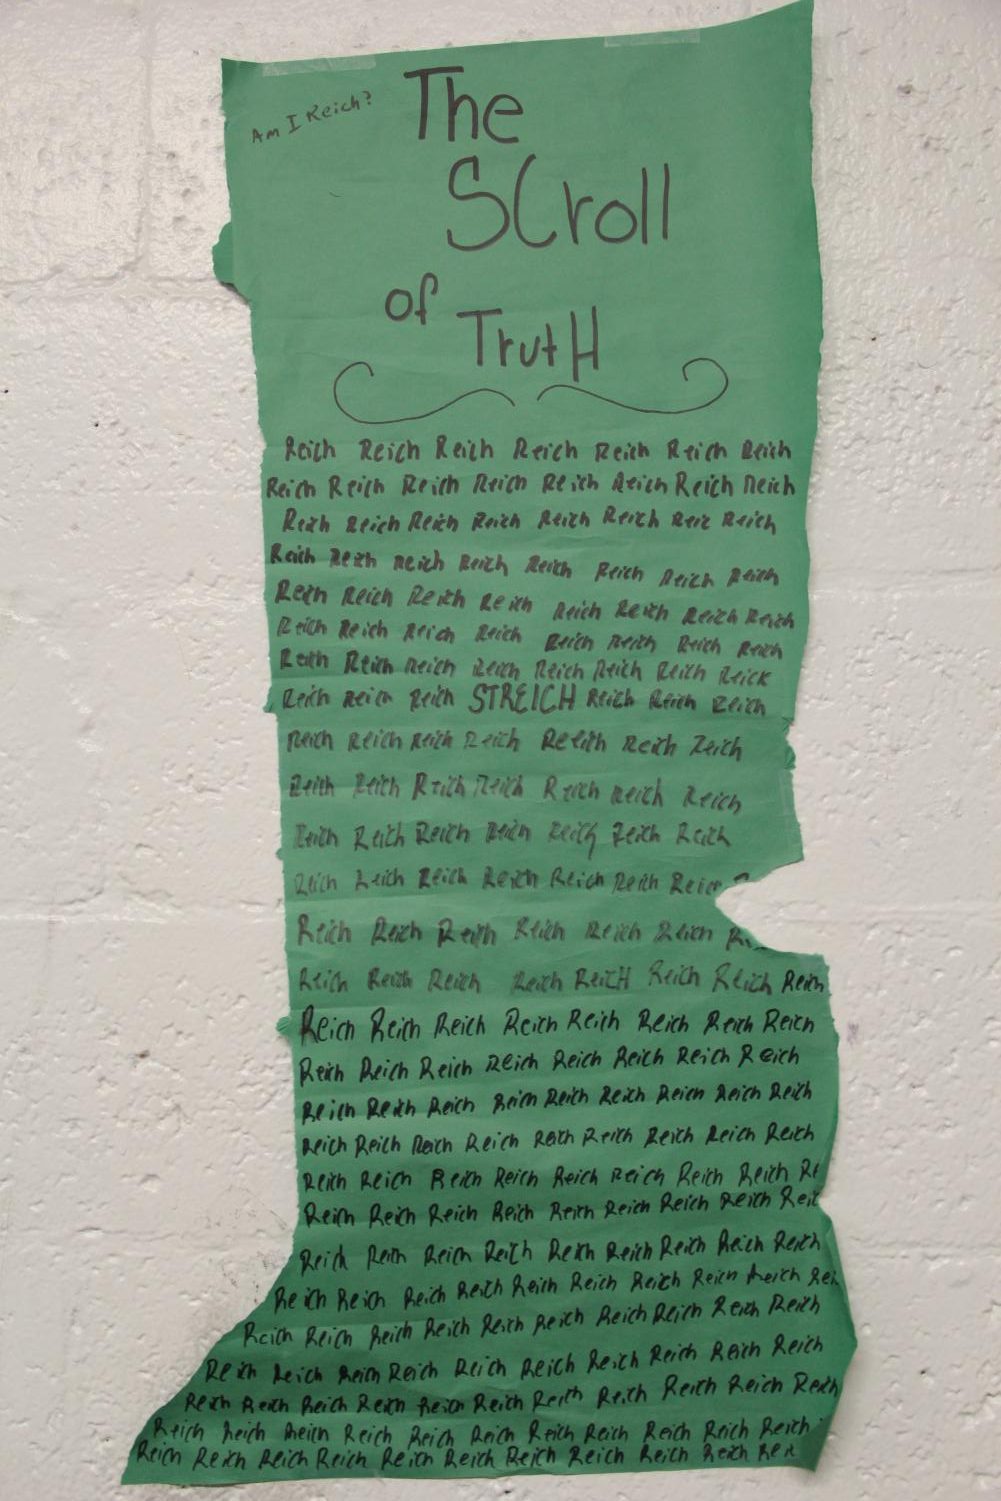 Am I Reich?
The
SCroll
of
TrutH
Reich Reich Reich Reich Reich Reich Reich
Reich Reich Reich Reich Reich Reich Reich Reich
Reich Reich Reich Reich Reich Reich Reic Reich
Reich Reich Reich Reich Reich Reich Reich Reich
Reich Reich Reich Reich Reich Reich Reich Reich
Reich Reich Reich Reich Reich Reich Reich Reich
Reich Reich Reich Reich Reich Reich Reich Reick
Reich Reich Reich STREICH Reich Reich Reich
Reich Reich Reich Reich Reeich Reich Reich
Reich Reich Reich Reich Reich Reich Reich
Reich Reich Reich Reich Reich Reich Reich
Reich Reich Reich Reich Reich Reich Reic
Reich Reich Reich Reich Reich Reich
Reich Reich Reich Reich ReicH Reich Reich Reich
Reich Reich Reich Reich Reich Reich Reich Reich
Reich Reich Reich Reich Reich Reich Reich Reich
Reich Reich Reich Reich Reich Reich Reich Reich Reich
Reich Reich Reich Reich Reich Reich Reich Reich Reich
Reich Reich Reich Reich Reich Reich Reich Reich Rei
Reich Reich Reich Reich Reich Reich Reich Reich Reic
Reich Reich Reich Reich Reich Reich Reich Reich Reich
Reich Reich Reich Reich Reich Reich Reich Reich Reich Rei
Reich Reich Reich Reich Reich Reich Reich Reich Reich Reich
Reich Reich Reich Reich Reich Reich Reich Reich Reich Reich
Reich Reich Reich Reich Reich Reich Reich Reich Reich Reich Reich
Reich Reich Reich Reich Reich Reich Reich Reich Reich Reich Reich
Reich Reich Reich Reich Reich Reich Reich Reich Reich Reich Rei